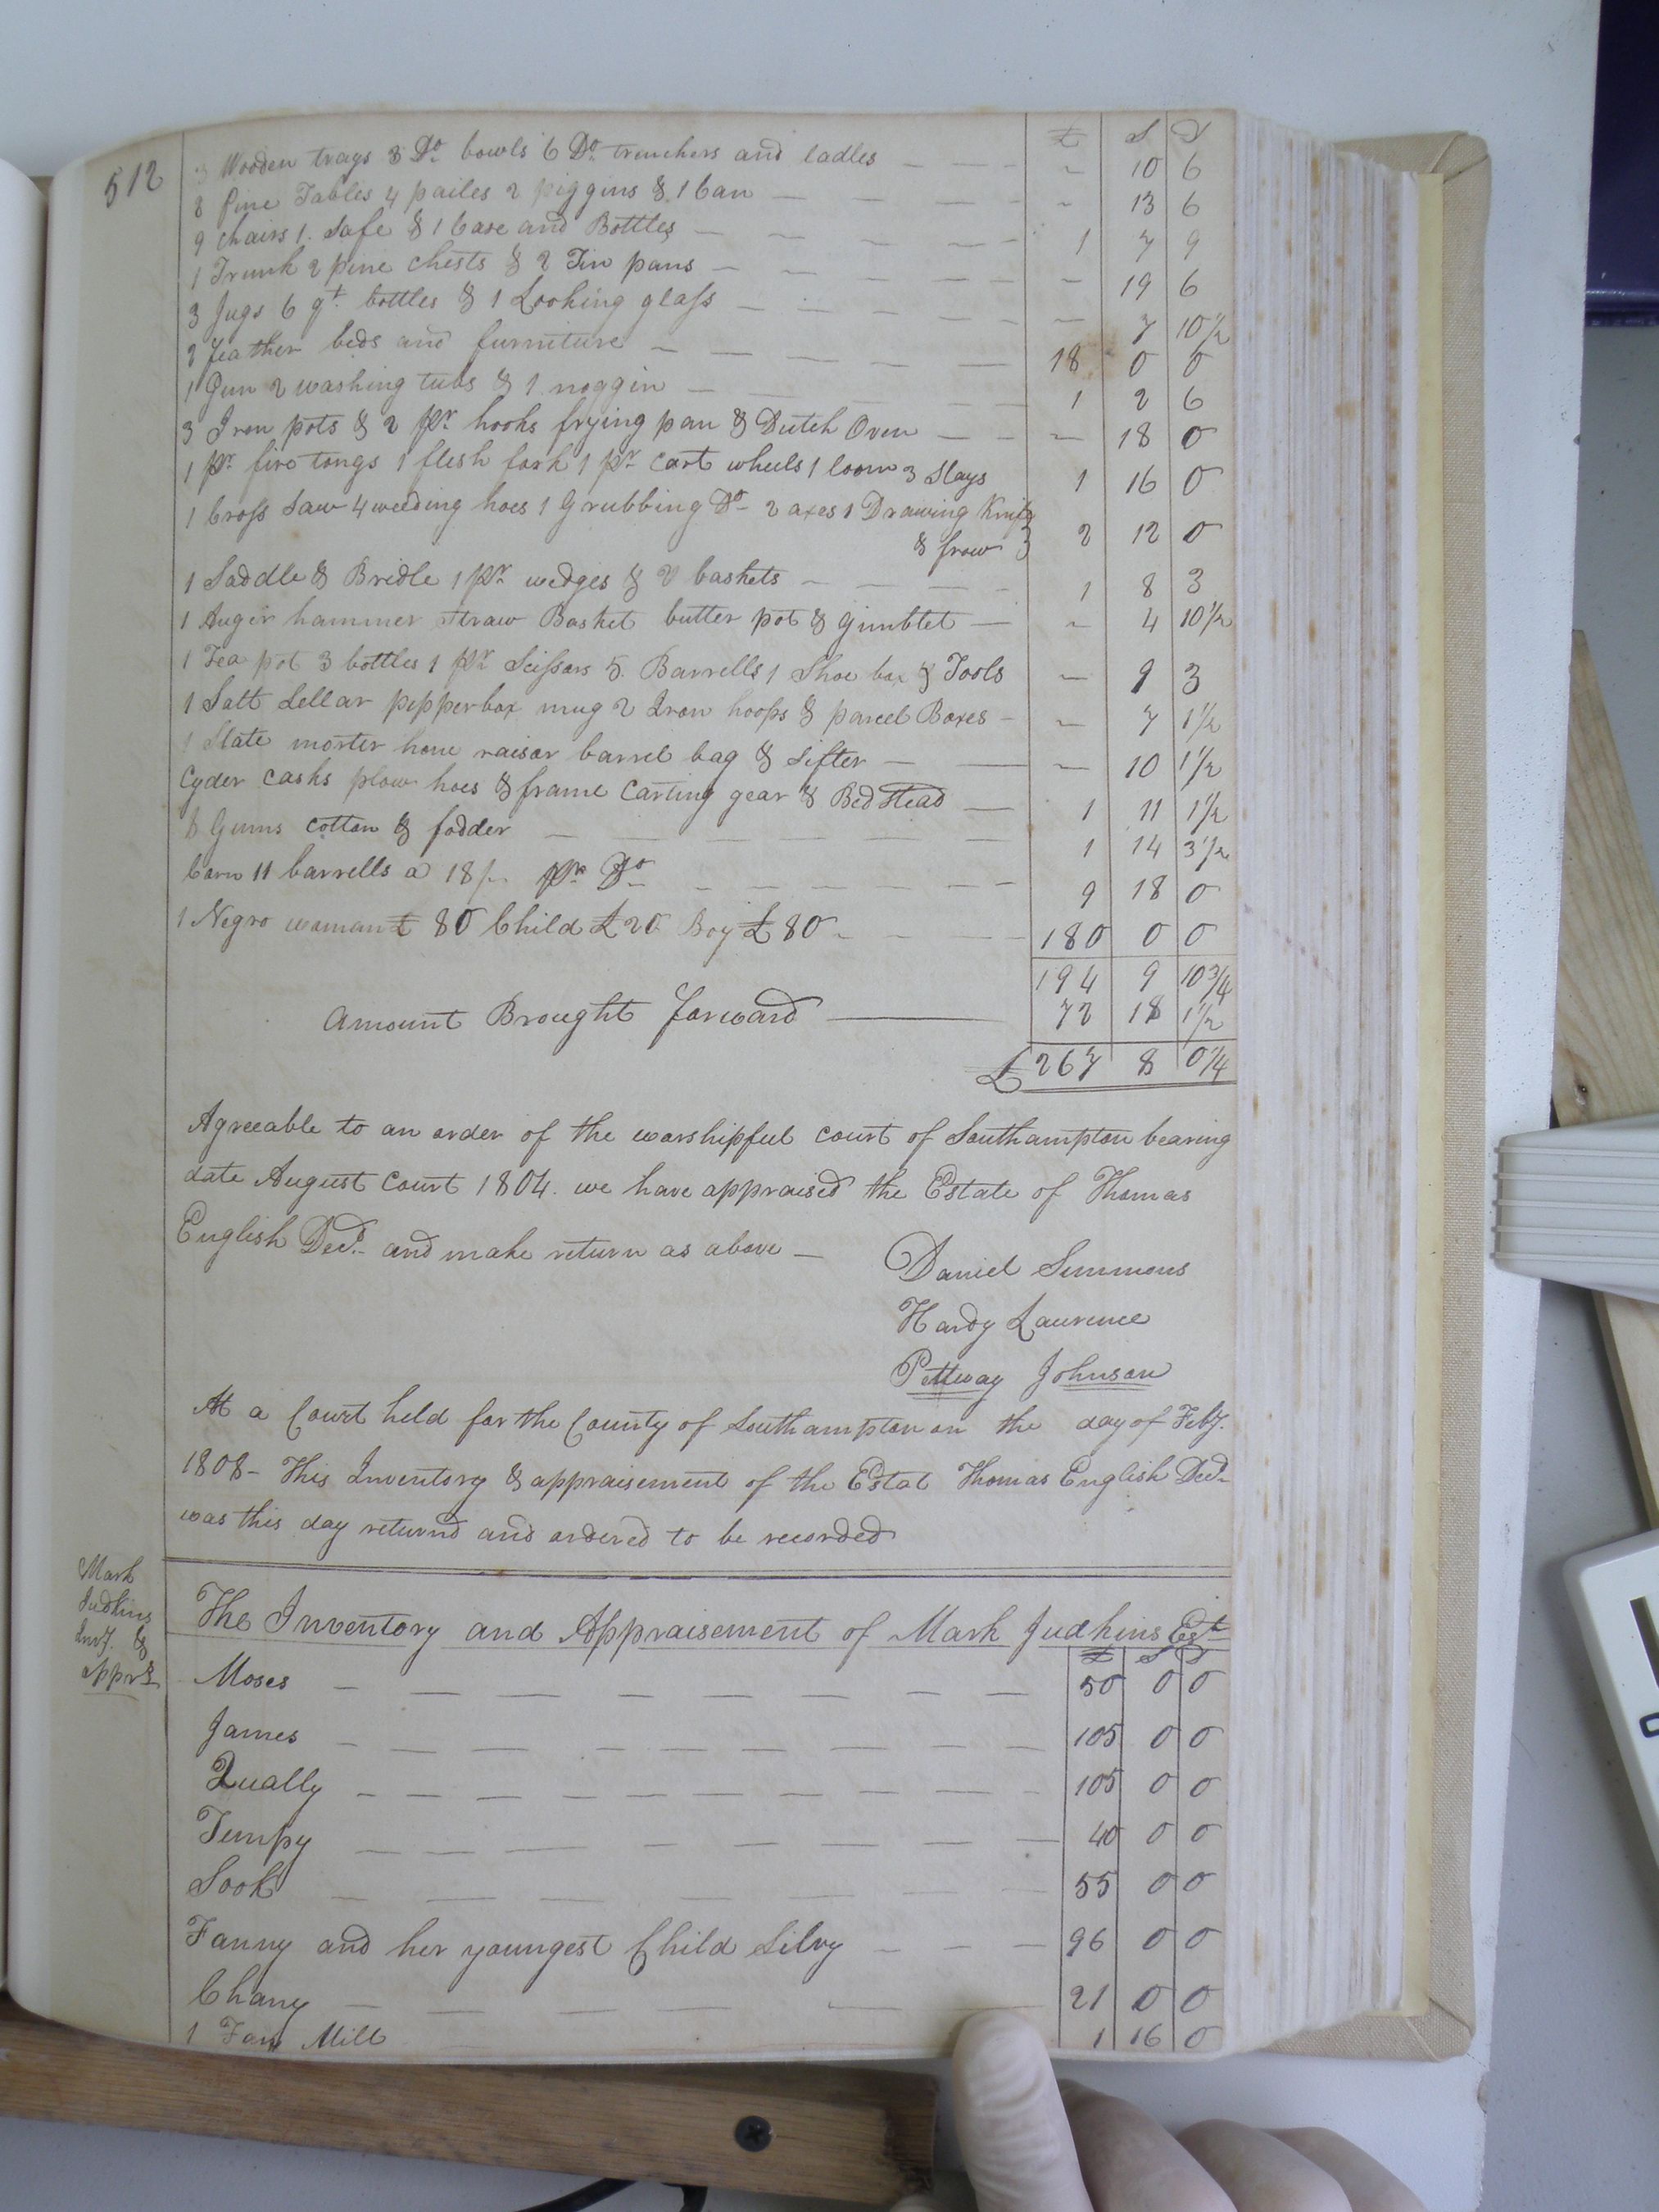 512
£ S D
3 Wooden trays 3 Do. bowls 6 Do. trenchers and ladles — — — ~ 10 6
8 Pine Tables 4 pailes 2 piggins & 1 Can — — — ~ 13 6
9 Chairs 1. Safe & 1 Case and Bottles — — — 1 7 9
1 Trunk 2 pine chests & 2 Tin pans — — — ~ 19 6
3 Jugs 6 qt. bottles & 1 Looking glass — — — ~ 7 10½
2 feather beds and furniture — — — 18 0 0
1 Gun 2 washing tubs & 1 noggin — — — 1 2 6
3 Iron pots & 2 pr. hooks frying pan & Dutch Oven — — — 18 0
1 Pr. fire tongs 1 flesh fork 1 pr. cart wheels 1 loom 3 Slays 1 16 0
1 Cross Saw 4 weeding hoes 1 Grubbing Do. 2 axes 1 Drawing Knife
& frow } 2 12 0
1 Saddle & Bridle 1 pr. wedges & 2 baskets — — — 1 8 3
1 Auger hammer Straw Basket butter pot & Gimblet — ~ 4 10½
1 Tea pot 3 bottles 1 pr. Scissars 5. Barrells 1 Shoe box & Tools — 9 3
1 Salt Sellar pepper box mug 2 Iron hoops & parcel Boxes — ~ 7 1½
1 Slate morter hone raisor barrel bag & Sifter — — ~ 10 1½
Cyder casks plow hoes & frame Carting gear & Bed Stead — 1 11 1½
6 Gums cotton & fodder — — — 1 14 3½
Corn 11 barrells a 18/- pr. Do. — — — 9 18 0
1 Negro woman £ 80 Child £20 Boy £80 — — — 180 0 0
194 9 10¾
Amount Brought forward — 72 18 1½
£ 267 8 0¼
Agreeable to an order of the worshipful court of Southampton bearing
date August Court 1804. we have appraised the Estate of Thomas
English Decd. and make return as above —
Daniel Simmons
Hardy Laurence
Pettway Johnson
At a Court held for the County of Southampton on the day of Feby.
1808 – This Inventory & appraisement of the Estat Thomas English Decd.
was this day returnd and ordered to be recorded
Mark
Judkins
Invy. &
apprt.
The Inventory and Appraisement of Mark Judkins Est.
£ S D
Moses — — — 50 0 0
James — — — 105 0 0
Qually — — — 105 0 0
Tempy — — — 40 0 0
Sook — — — 55 0 0
Fanny and her youngest Child Silvy — — — 96 0 0
Chany — — — 21 0 0
1 Fan Mill 1 16 0